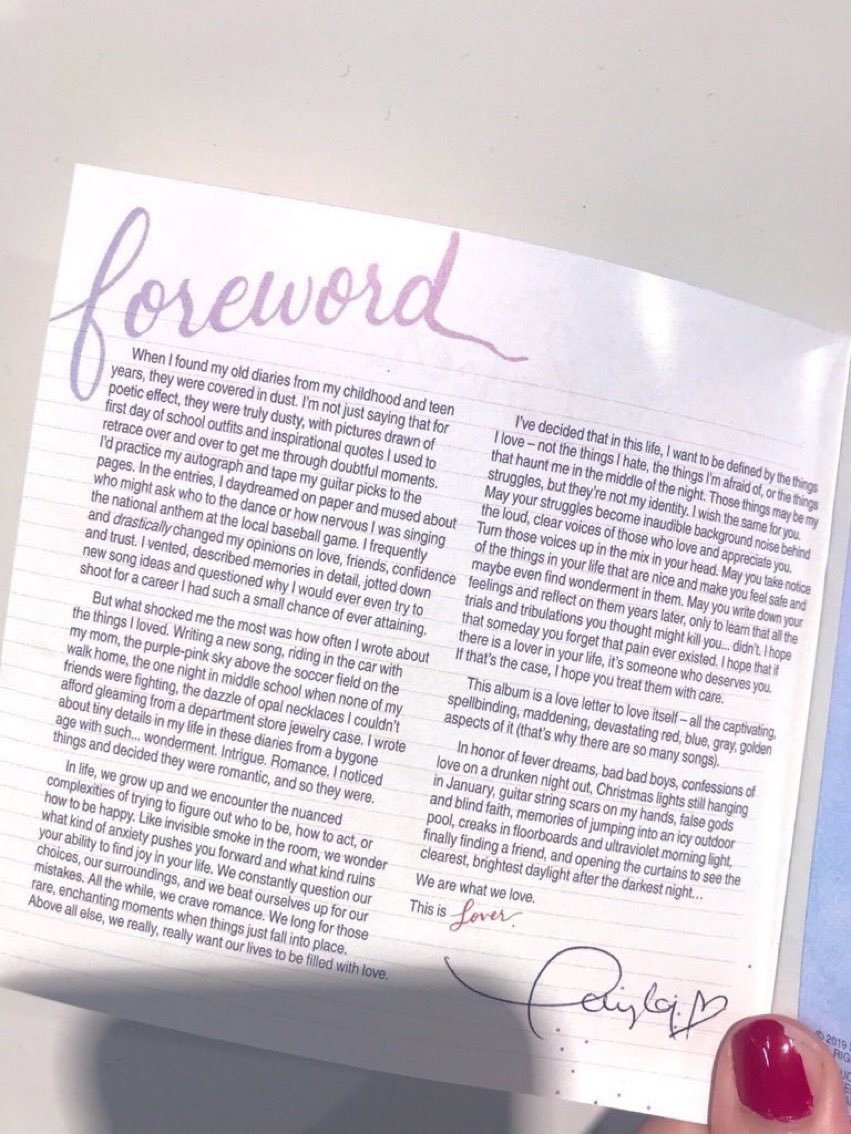 foreword
When I found my old diaries from my childhood and teen
years, they were covered in dust. I'm not just saying that for
poetic effect, they were truly dusty, with pictures drawn of
first day of school outfits and inspirational quotes I used to
retrace over and over to get me through doubtful moments.
I'd practice my autograph and tape my guitar picks to the
pages. In the entries, I daydreamed on paper and mused about
who might ask who to the dance or how nervous I was singing
the national anthem at the local baseball game. I frequently
and drastically changed my opinions on love, friends, confidence
and trust. I vented, described memories in detail, jotted down
new song ideas and questioned why I would ever even try to
shoot for a career I had such a small chance of ever attaining.
But what shocked me the most was how often I wrote about
the things I loved. Writing a new song, riding in the car with
my mom, the purple-pink sky above the soccer field on the
walk home, the one night in middle school when none of my
friends were fighting, the dazzle of opal necklaces I couldn't
afford gleaming from a department store jewelry case. I wrote
about tiny details in my life in these diaries from a bygone
age with such... wonderment. Intrigue. Romance. I noticed
things and decided they were romantic, and so they were.
In life, we grow up and we encounter the nuanced
complexities of trying to figure out who to be, how to act, or
how to be happy. Like invisible smoke in the room, we wonder
what kind of anxiety pushes you forward and what kind ruins
your ability to find joy in your life. We constantly question our
choices, our surroundings, and we beat ourselves up for our
mistakes. All the while, we crave romance. We long for those
rare, enchanting moments when things just fall into place.
Above all else, we really, really want our lives to be filled with love.
I've decided that in this life, I want to be defined by the things
I love – not the things I hate, the things I'm afraid of, or the things
that haunt me in the middle of the night. Those things may be my
struggles, but they're not my identity. I wish the same for you.
May your struggles become inaudible background noise behind
the loud, clear voices of those who love and appreciate you.
Turn those voices up in the mix in your head. May you take notice
of the things in your life that are nice and make you feel safe and
maybe even find wonderment in them. May you write down your
feelings and reflect on them years later, only to learn that all the
trials and tribulations you thought might kill you... didn't. I hope
that someday you forget that pain ever existed. I hope that if
there is a lover in your life, it's someone who deserves you.
If that's the case, I hope you treat them with care.
This album is a love letter to love itself – all the captivating,
spellbinding, maddening, devastating red, blue, gray, golden
aspects of it (that's why there are so many songs).
In honor of fever dreams, bad bad boys, confessions of
love on a drunken night out, Christmas lights still hanging
in January, guitar string scars on my hands, false gods
and blind faith, memories of jumping into an icy outdoor
pool, creaks in floorboards and ultraviolet morning light,
finally finding a friend, and opening the curtains to see the
clearest, brightest daylight after the darkest night...
We are what we love.
This is Lover.
© 2019